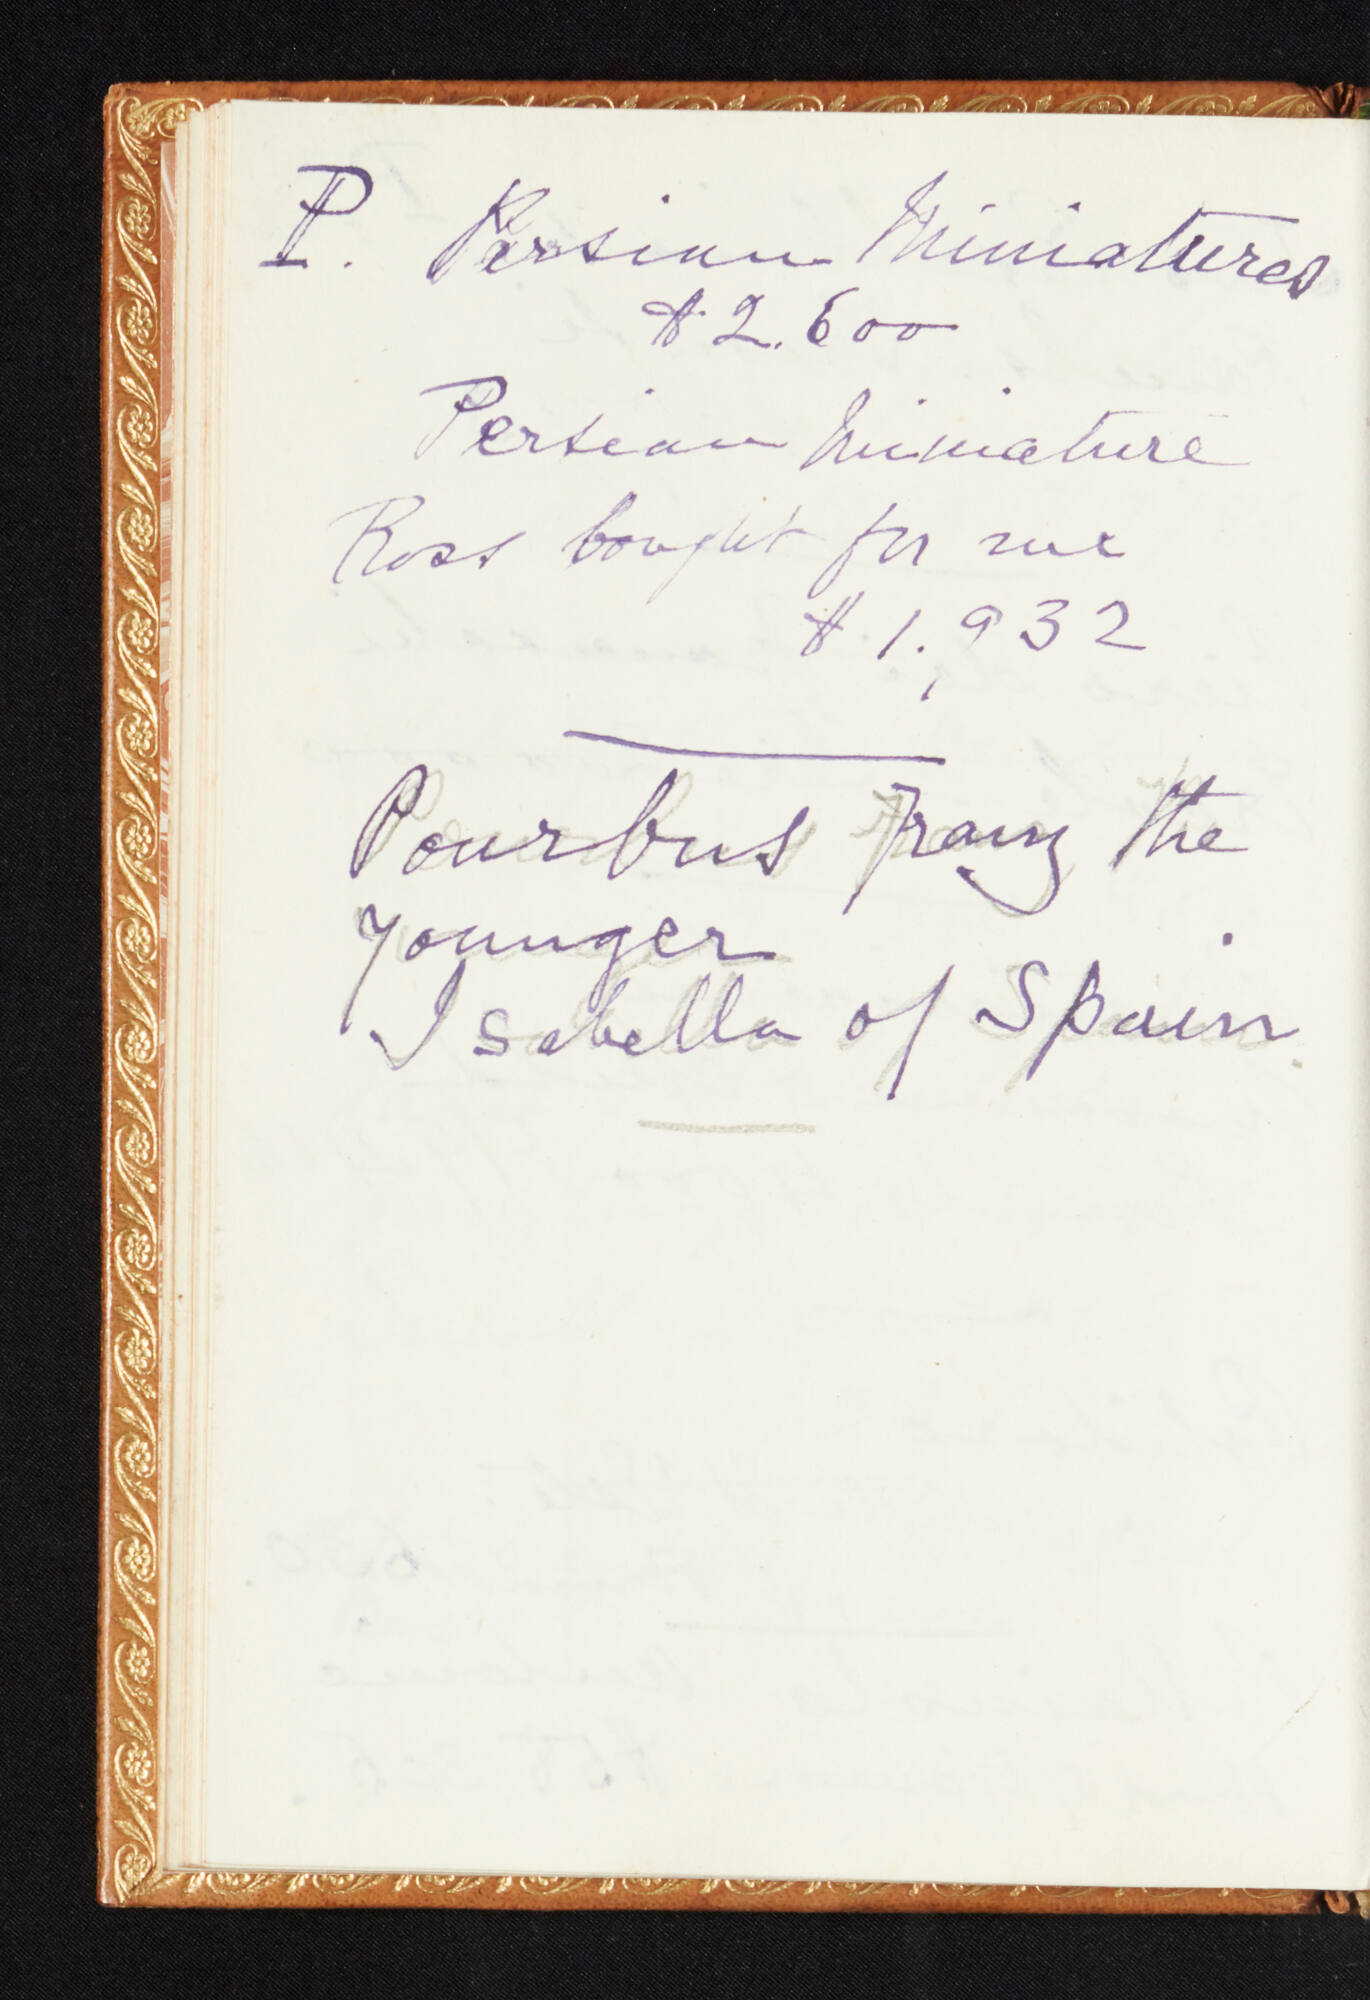 P. Persian Miniatures
$2.600
Persian Miniature
Ross bought for me
$1.932
Pourbus Franz the
younger
Isabella of Spain